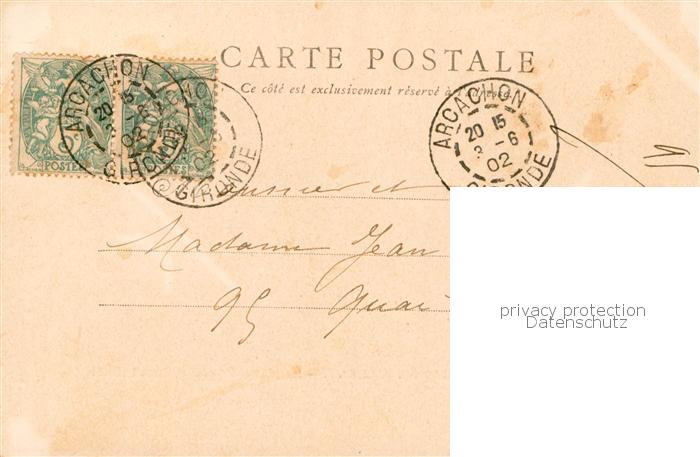 CARTE POSTALE
Ce côté est exclusivement réservé à l'adresse.
ARCACHON
20 15
3 -6
02
GIRONDE
ARCACHON
20 15
3 -6
02
GIRONDE
GIRONDE
02
POSTES
Monsieur et
Madame Jean
95 Quai
privacy protection
Datenschutz